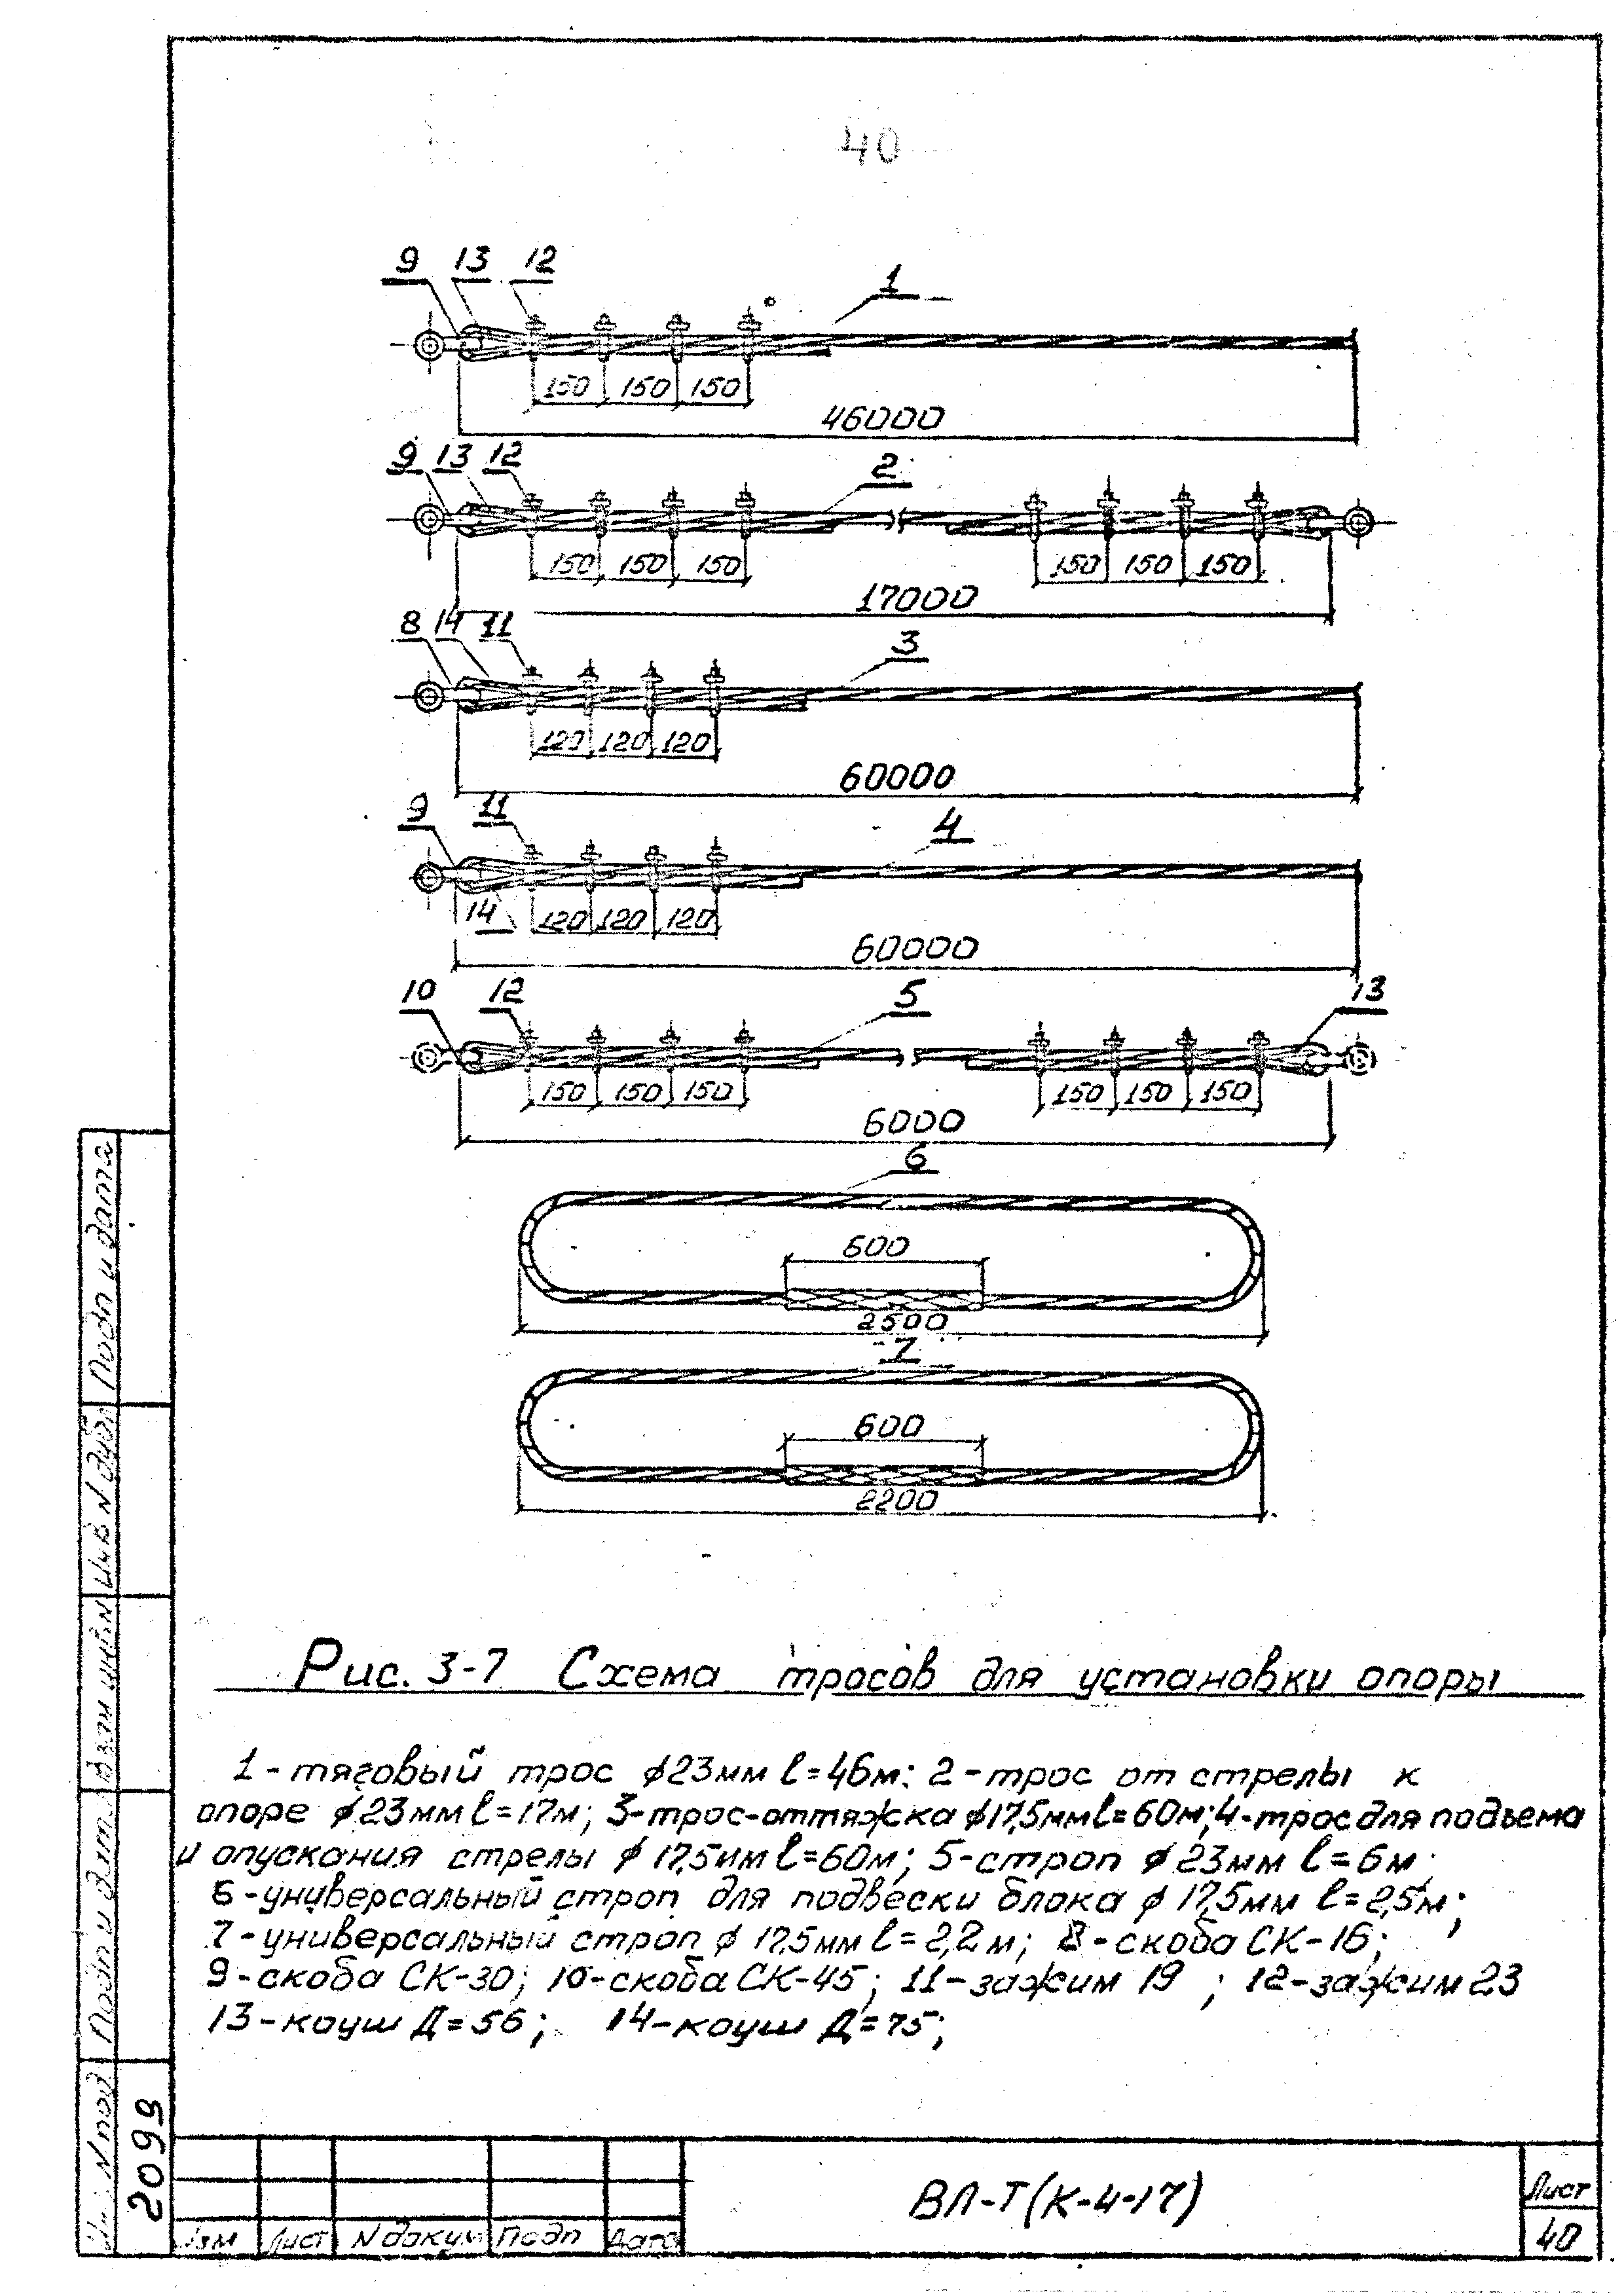 40
9 13 12 1
150 150 150
46000
9 13 12 2
150 150 150 150 150 150
17000
8 14 11 3
120 120 120
60000
9 11 4
14 120 120 120
60000
10 12 5 13
150 150 150 150 150 150
6000
6
600
2500
7
600
2200
Рис. 3-7 Схема тросов для установки опоры
1 - тяговый трос ϕ23мм l=46м; 2 - трос от стрелы к
опоре ϕ23мм l=17м; 3-трос-оттяжка ϕ17,5мм l=60м; 4-трос для подъема
и опускания стрелы ϕ 17,5мм l=60м; 5-строп ϕ 23мм l=6м;
6-универсальный строп для подвески блока ϕ 17,5мм l=2,5м;
7-универсальный строп ϕ 17,5мм l=2,2м; 8-скоба СК-16;
9-скоба СК-30; 10-скоба СК-45; 11-зажим 19 ; 12-зажим 23
13-коуш Д=56; 14-коуш Д=75;
Подп и дата
Инв N дубл
Взам инв. N
Подп и дат.
N под
2099
Изм Лист N докум Подп Дата
ВЛ-Т(К-4-17)
Лист
40